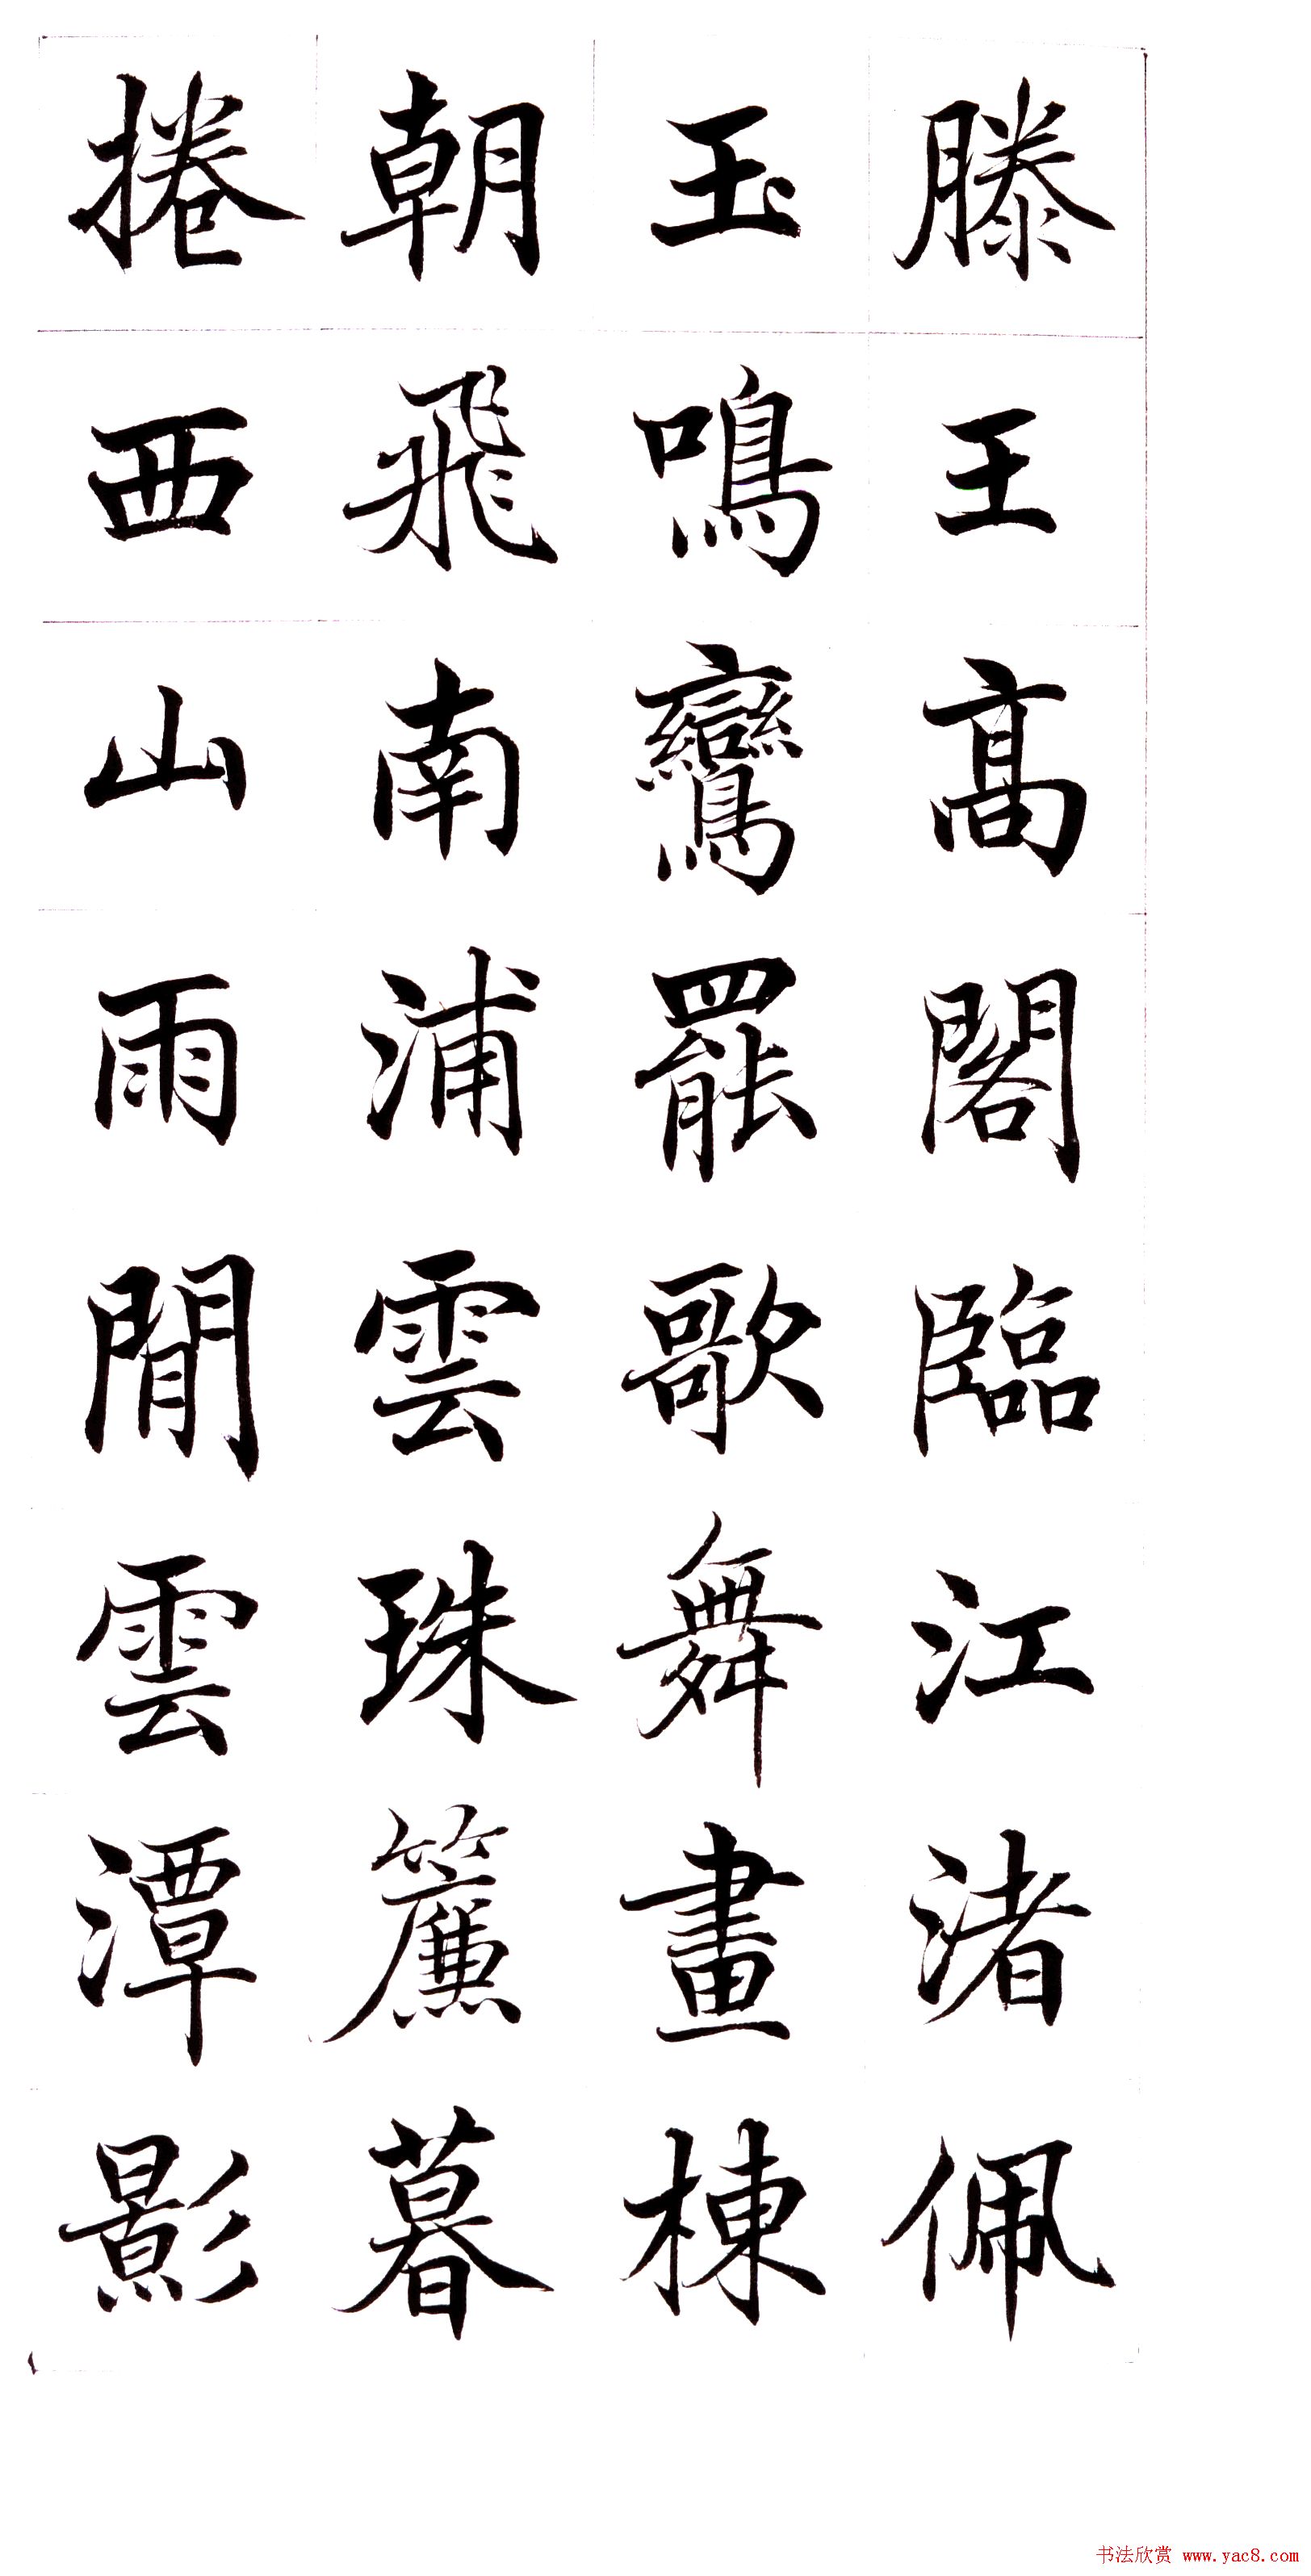 滕王高閣臨江渚佩
玉鳴鸞罷歌舞畫棟
朝飛南浦雲珠簾暮
捲西山雨閒雲潭影
书法欣赏 www.yac8.com